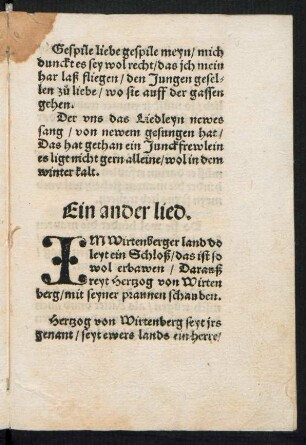 Gespile liebe gespile meyn/ mich
dunckt es sey wol recht/ das ich mein
har laß fliegen/ den Jungen gesel-
len zů liebe/ wo sie auff der gassen
gehen.
Der vns das Liedleyn newes
sang/ von newem gesungen hat/
Das hat gethan ein Junckfrewlein
es ligt nicht gern alleine/ wol in dem
winter kalt.
Ein ander lied.
IM Wirtenberger land do
leyt ein Schloß/ das ist so
wol erbawen/ Darauß
reyt Hertzog von Wirten
berg/ mit seyner prannen schauben.
Hertzog von Wirtenberg seyt irs
genant/ seyt ewers lands ein herre/